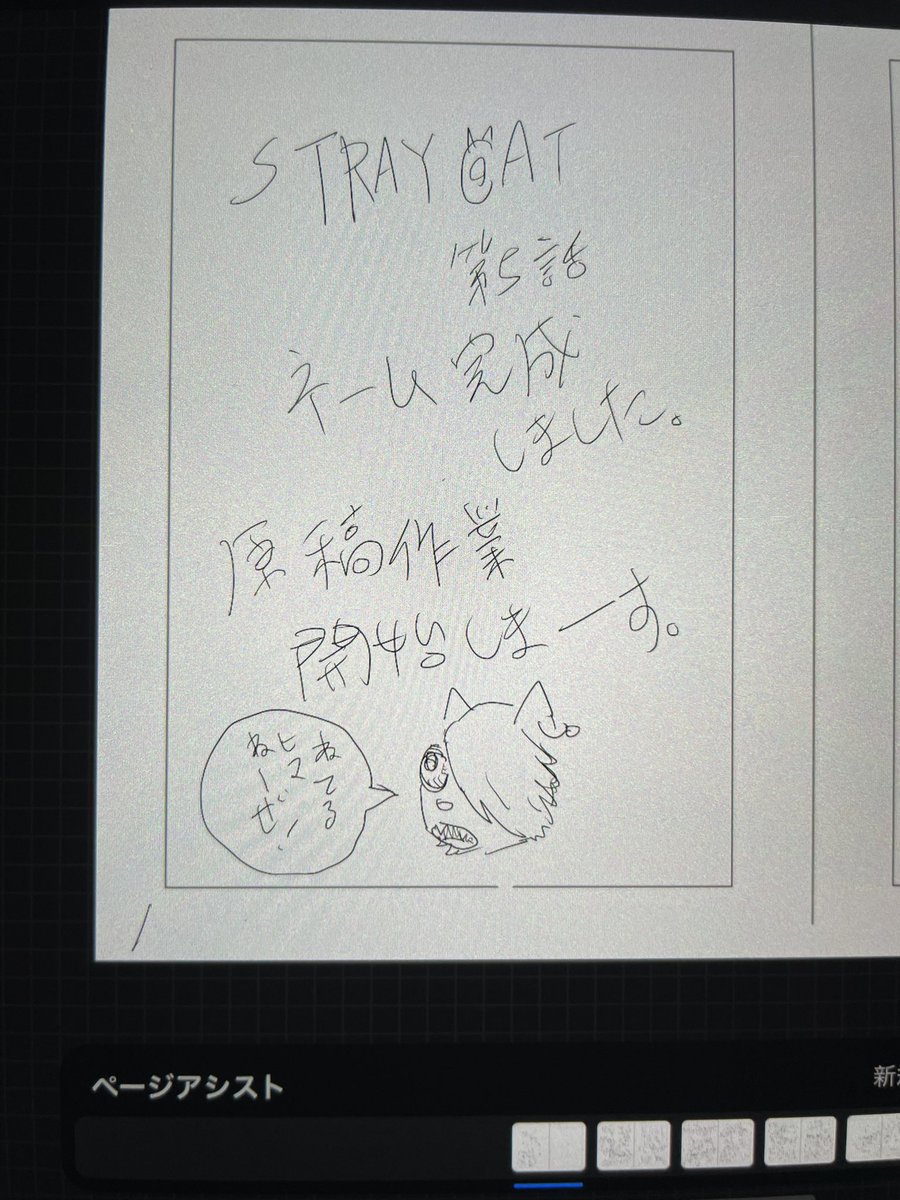 STRAY CAT
第5話
ネーム完成
しました。
原稿作業
開始しまーす。
ねてる
ヒマ
ねーぜ!
1
ページアシスト
新規